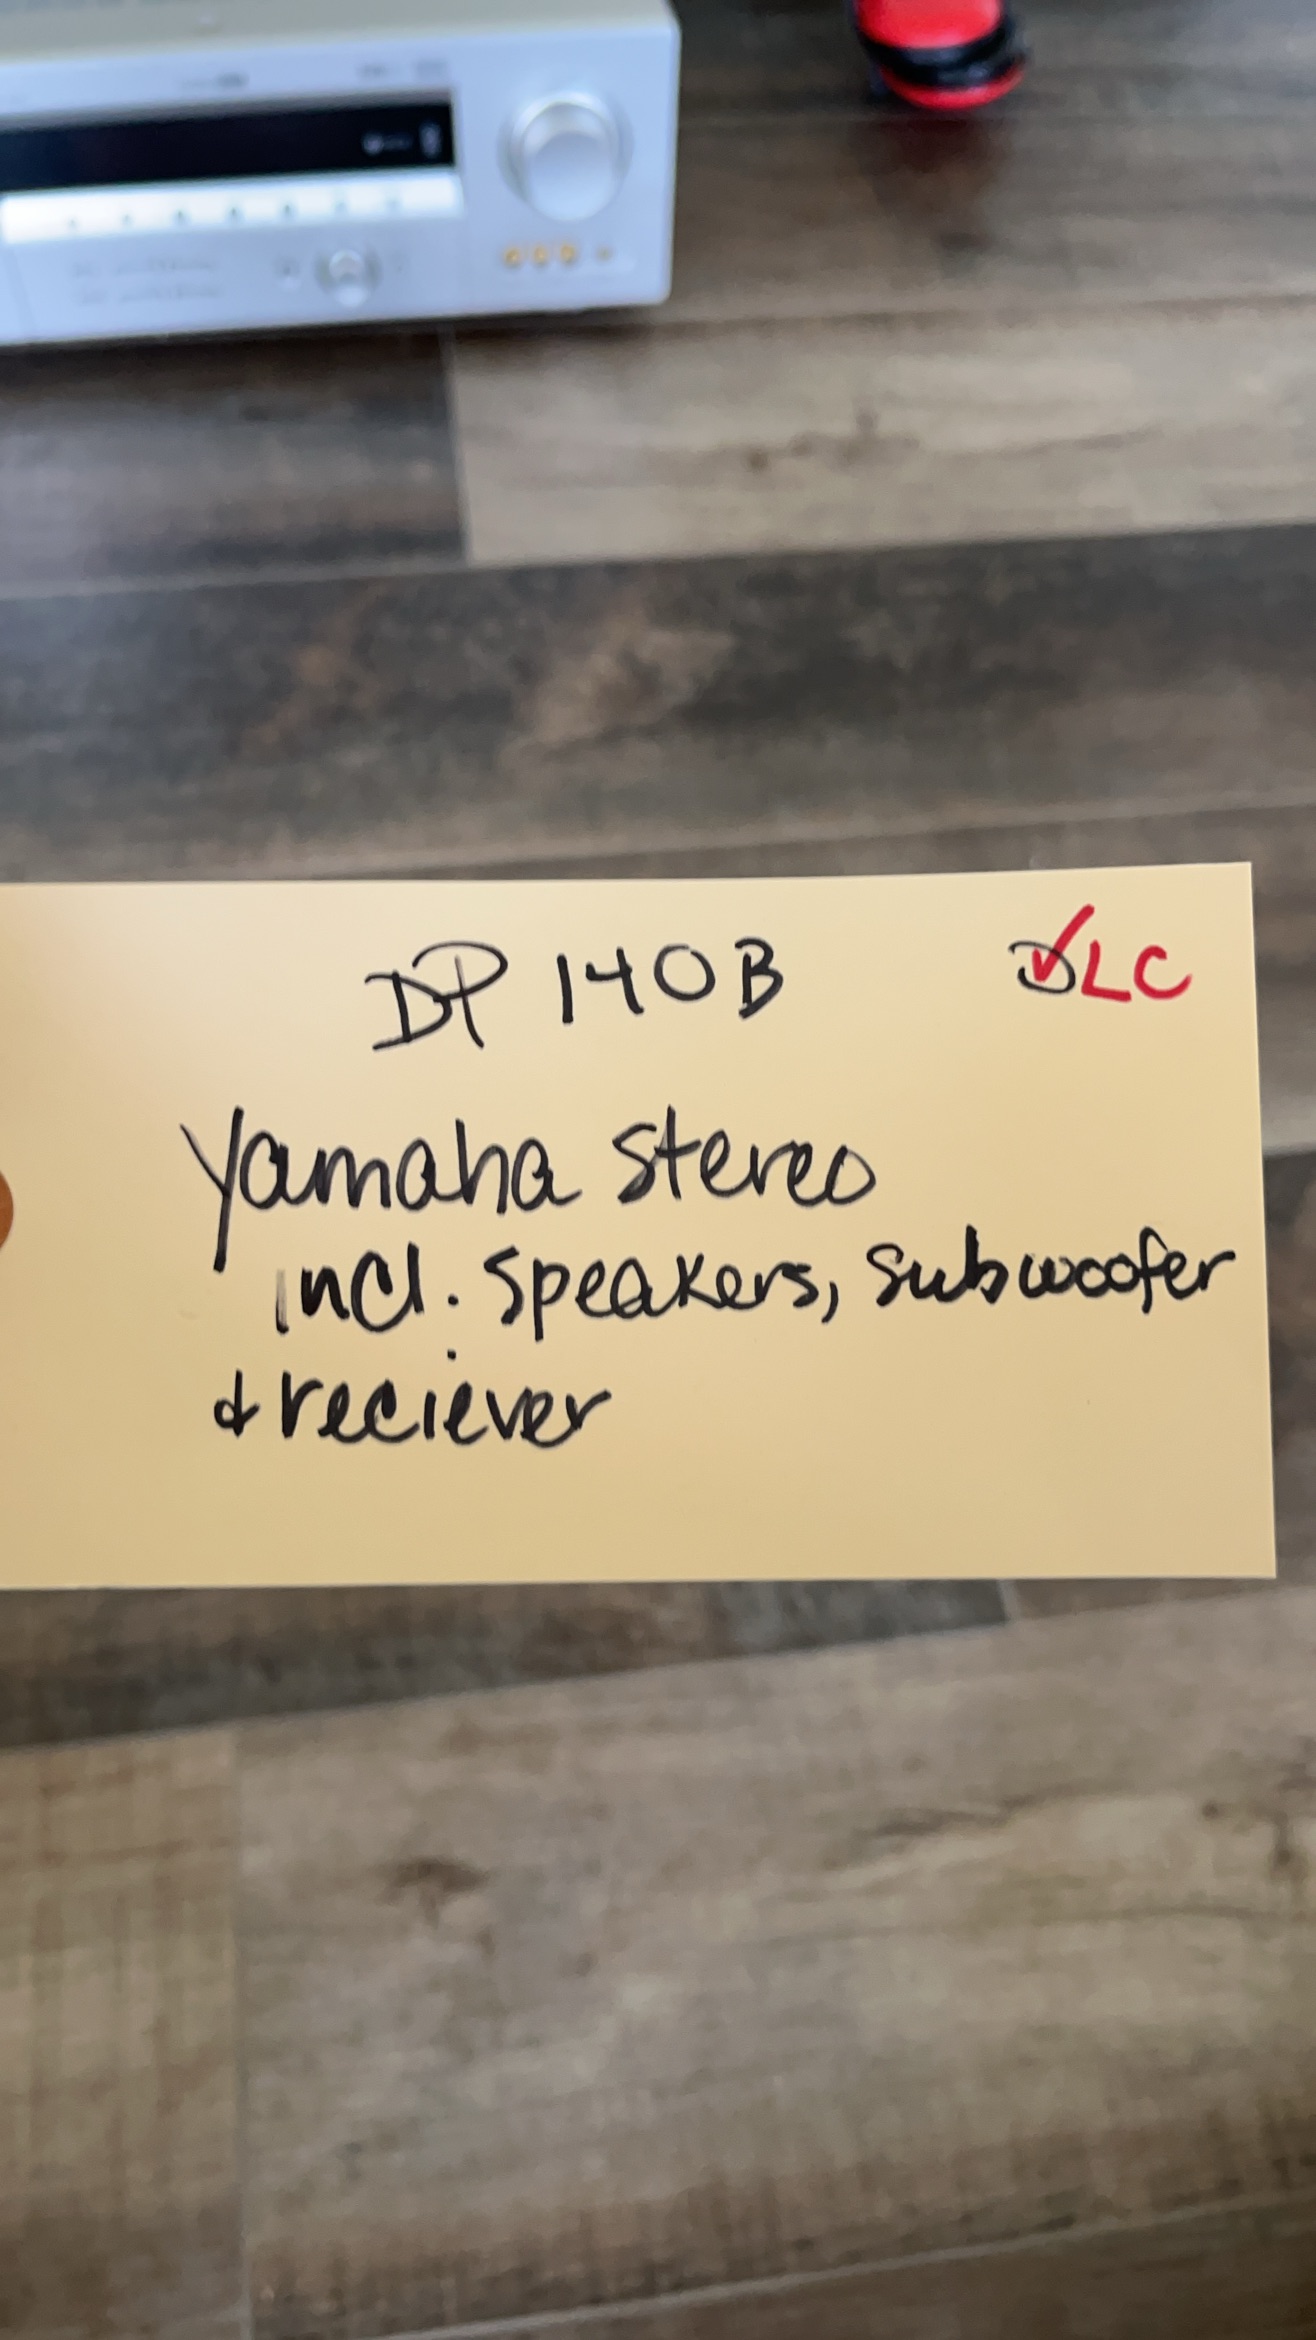 DP 140B ✓LC
Yamaha stereo
incl. speakers, subwoofer
& reciever